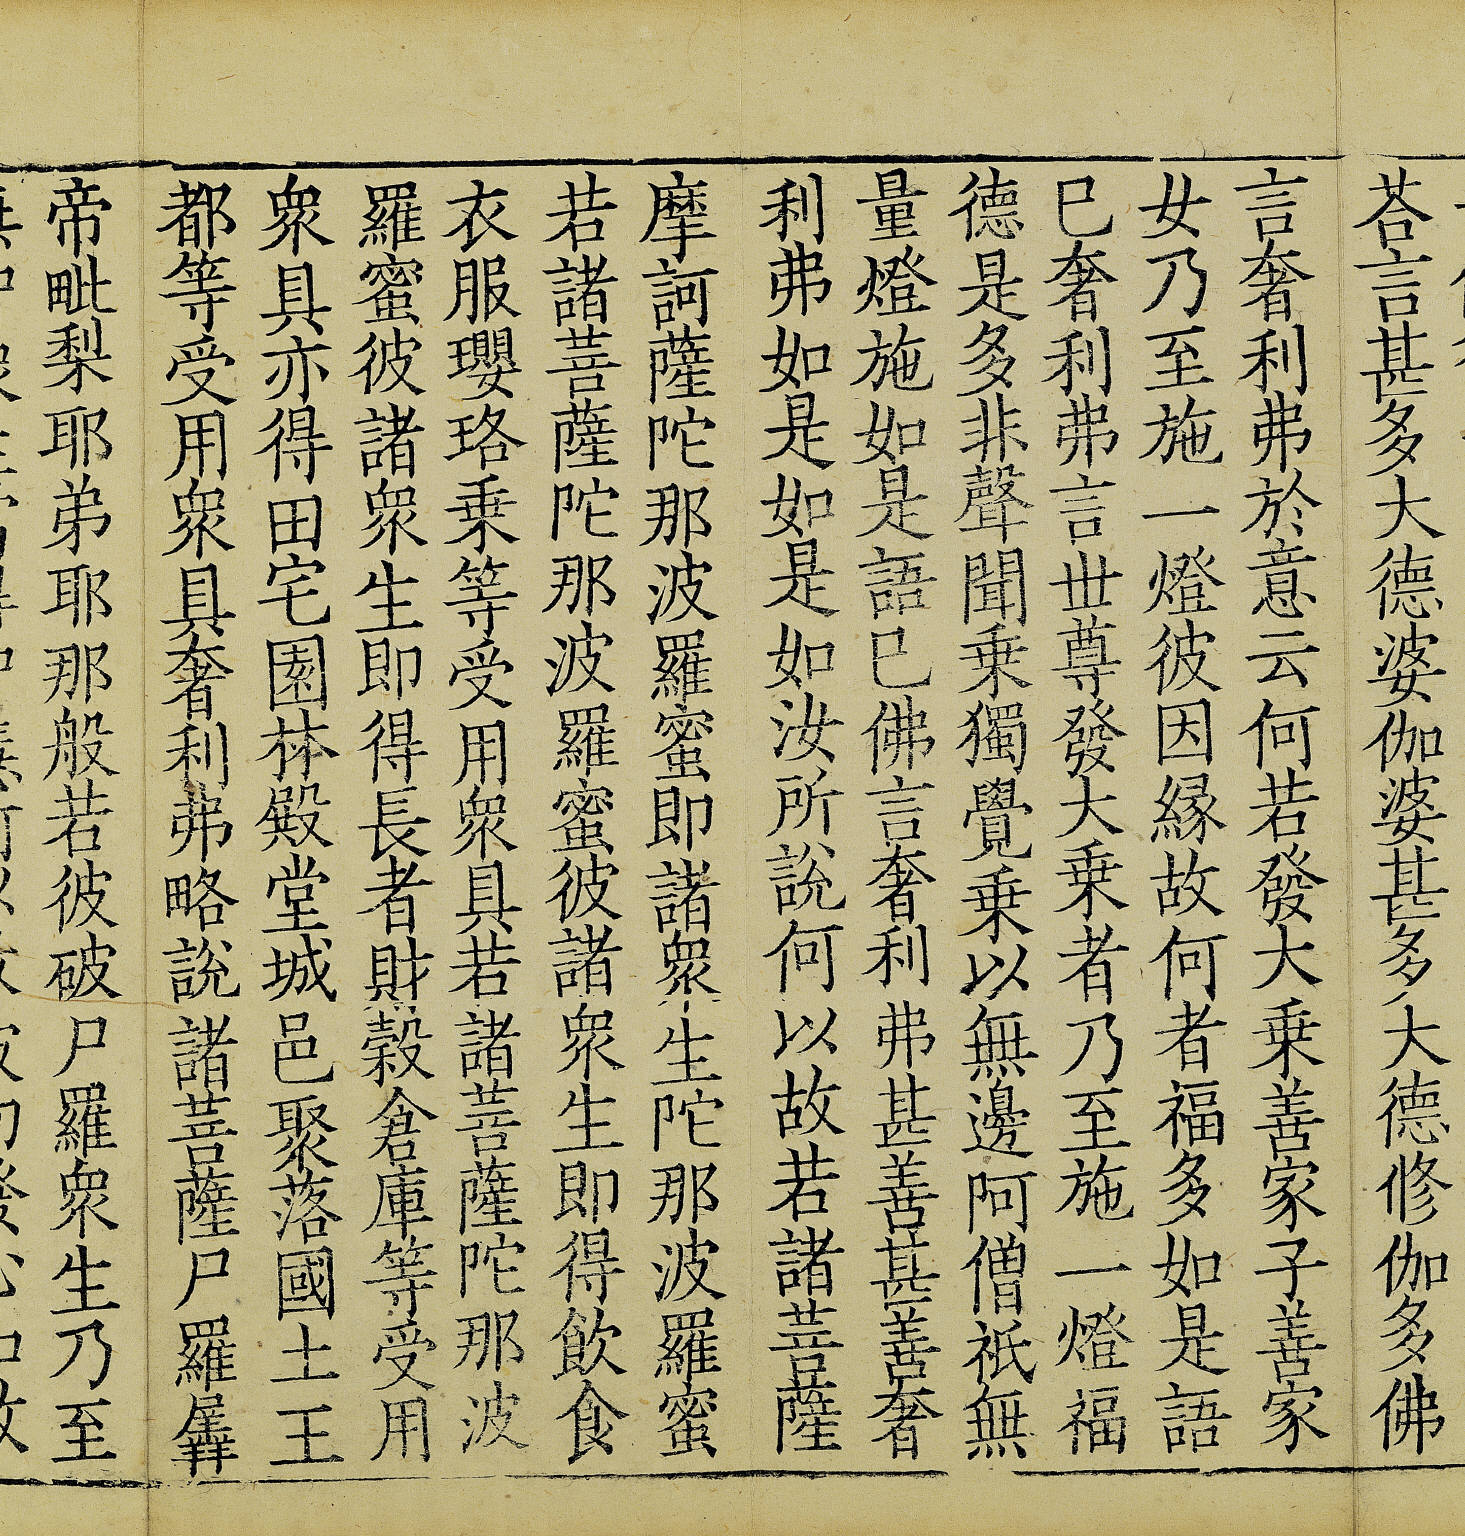 荅言甚多大德婆伽婆甚多大德修伽多佛
言奢利弗於意云何若發大乗善家子善家
女乃至施一燈彼因縁故何者福多如是語
巳奢利弗言丗尊發大乗者乃至施一燈福
德是多非聲聞乗獨覺乗以無邊阿僧祇無
量燈施如是語巳佛言奢利弗甚善甚善奢
利弗如是如是如汝所說何以故若諸菩薩
摩訶薩陀那波羅蜜即諸衆生陀那波羅蜜
若諸菩薩陀那波羅蜜彼諸衆生即得飲食
衣服瓔珞乗等受用衆具若諸菩薩陀那波
羅蜜彼諸衆生即得長者財穀倉庫等受用
衆具亦得田宅園林殿堂城邑聚落國土王
都等受用衆具奢利弗略說諸菩薩尸羅羼
帝毗梨耶弟耶那般若彼破尸羅衆生乃至